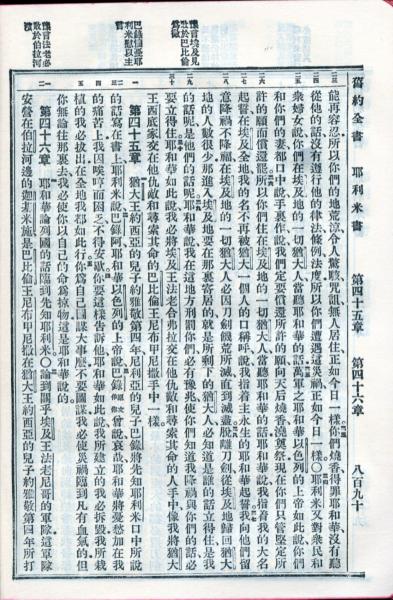 舊約全書　耶利米書　第四十五章　第四十六章　八百九十
能再容忍所以你們的地荒涼令人驚駭咒詛無人居住正如今日一樣。你們燒香得罪耶和華沒有聽
從他的話沒有遵行他的律法條例法度所以你們遭遇這災禍正如今日一樣○耶利米又對衆民和
衆婦女說你們在埃及地的一切猶大人當聽耶和華的話萬軍之耶和華以色列的上帝如此說你們
和你們的妻都口中說手裏作說我們定要償還所許的願向天后燒香澆奠祭現在你們只管堅定所
許的願而償還罷所以你們住在埃及地的一切猶大人當聽耶和華的話耶和華說我指着我的大名
起誓在埃及全地我的名不再被猶大一個人的口稱呼說我指着主永生的耶和華起誓我向他們留
意降禍不降福在埃及地的一切猶大人必因刀劍饑荒所滅直到滅盡脫離刀劍從埃及地歸回猶大
地的人數很少那進入埃及地要在那裏寄居的就是所剩下的猶大人必知道是誰的話立得住是我
的話呢是他們的話呢耶和華說我在這地方刑罰你們必有豫兆使你們知道我降禍與你們的話必
要立得住耶和華如此說我必將埃及王法老合弗拉交在他仇敵和尋索其命的人手中像我將猶大
王西底家交在他仇敵和尋索其命的巴比倫王尼布甲尼撒手中一樣。
第四十五章　猶大王約西亞的兒子約雅敬第四年尼利亞的兒子巴錄將先知耶利米口中所說
的話寫在書上耶利米說巴錄阿耶和華以色列的上帝說巴錄曾說哀哉耶和華將憂愁加在我
的痛苦上我因唉哼而困乏不得安歇你要這樣告訴他耶和華如此說我所建立的我必拆毀我所栽
植的我必拔出在全地我都如此行你爲自己圖謀大事麼不要圖謀我必使災禍臨到凡有血氣的但
你無論往那裏去我必使你以自己的命爲掠物這是耶和華說的。
第四十六章　耶和華論列國的話臨到先知耶利米○論到關乎埃及王法老尼哥的軍隊這軍隊
安營在伯拉河邊的迦基米施是巴比倫王尼布甲尼撒在猶大王約西亞的兒子約雅敬第四年所打